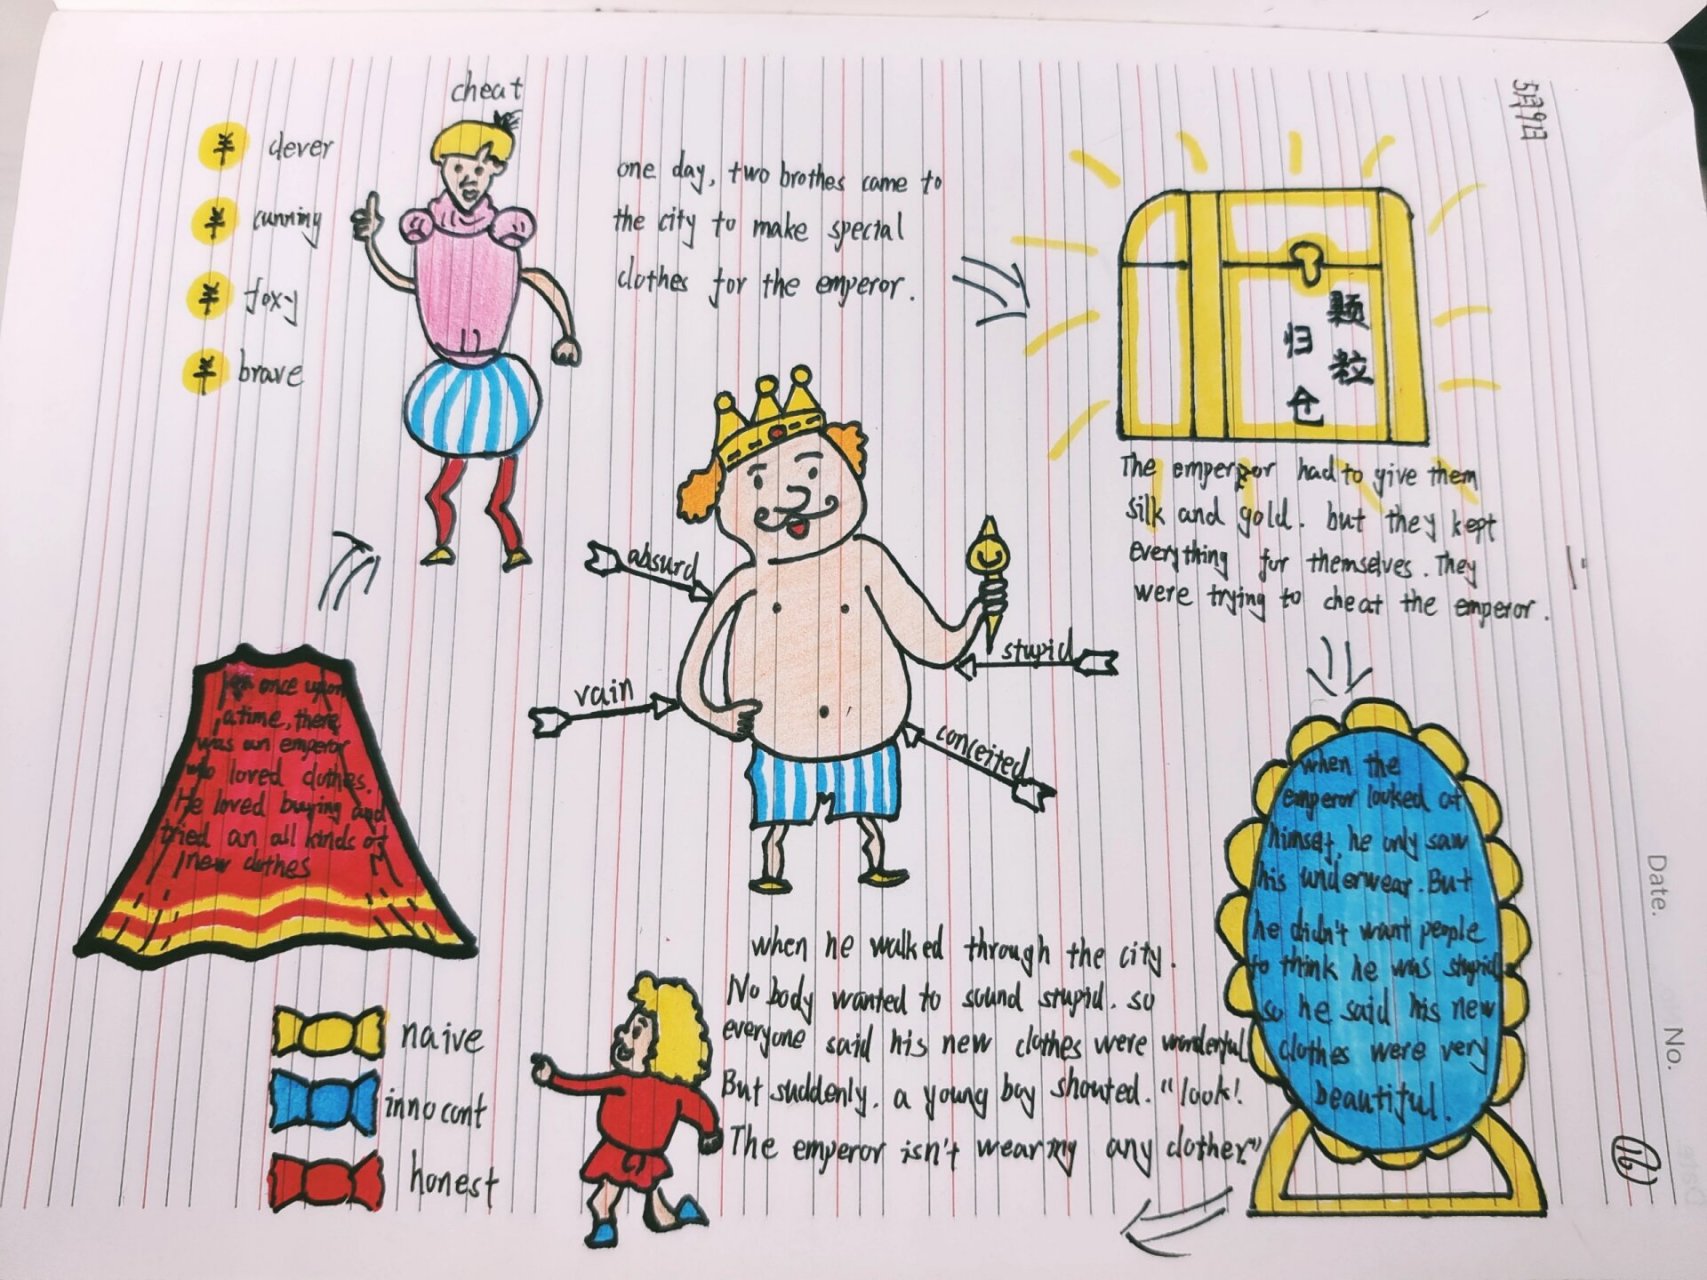 5月9日
cheat
clever
cunning
foxy
brave
one day, two brothes came to
the city to make special
clothes for the emperor.
颗粒
归仓
The emperor had to give them
silk and gold. but they kept
everything for themselves. They
were trying to cheat the emperor.
absurd
vain
stupid
conceited
once upon
a time, there
was an emperor
who loved clothes.
He loved buying and
tried an all kinds of
new clothes
when the
emperor looked at
himself, he only saw
his underwear. But
he didn't want people
to think he was stupid
so he said his new
clothes were very
beautiful.
when he walked through the city.
No body wanted to sound stupid. so
everyone said his new clothes were wonderful
But suddenly. a young boy shouted. "look!
The emperor isn't wearing any clother."
naive
innocent
honest
Date.
No.
(16)